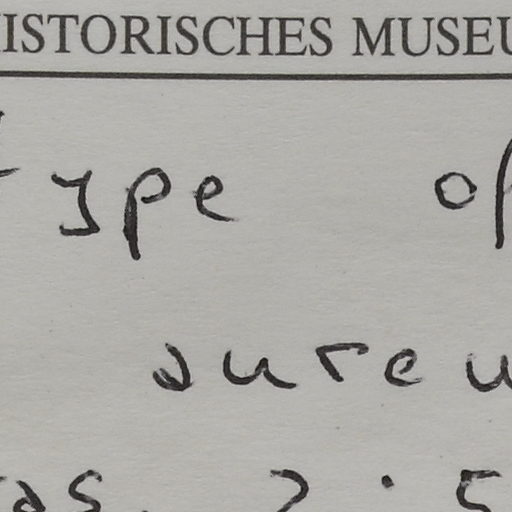 HISTORISCHES MUSEU
type of
aureu
as. 2.5